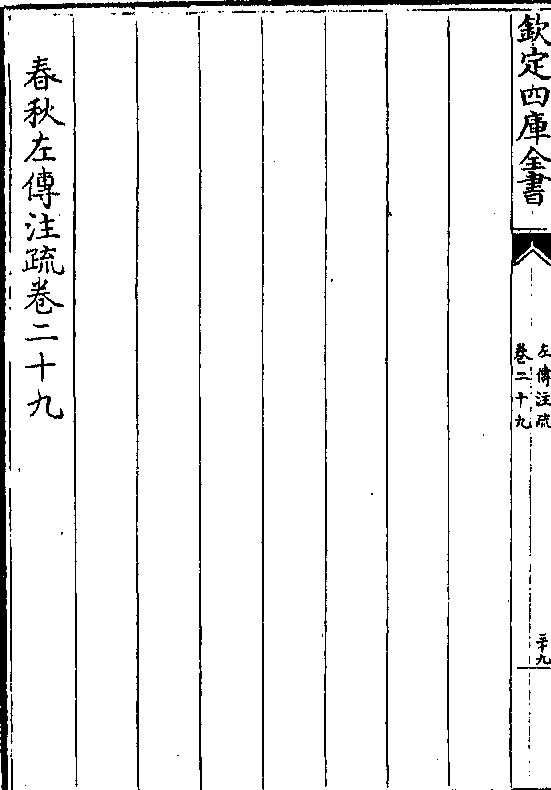 欽定四庫全書
左傳注疏
卷二十九
春秋左傳注疏卷二十九